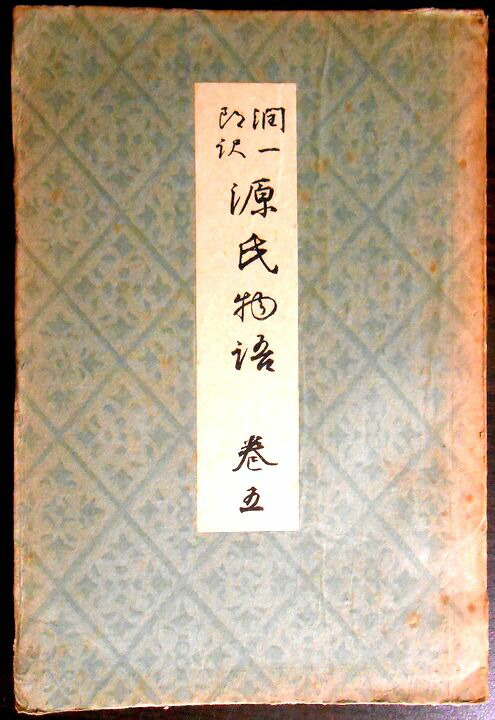 潤一
郎訳
源氏物語 巻五